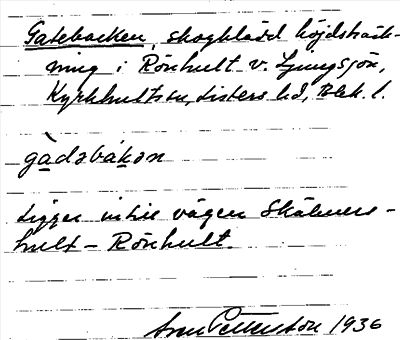 Gatebacken, skogklädd höjdsträck-
ning i Rönhult v. Ljungsjön,
Kyrkhults sn, Listers hd, Blek. l.
gàdəbákən
Ligger intill vägen Skälmers-
hult - Rönhult.
Sven Pettersson 1936